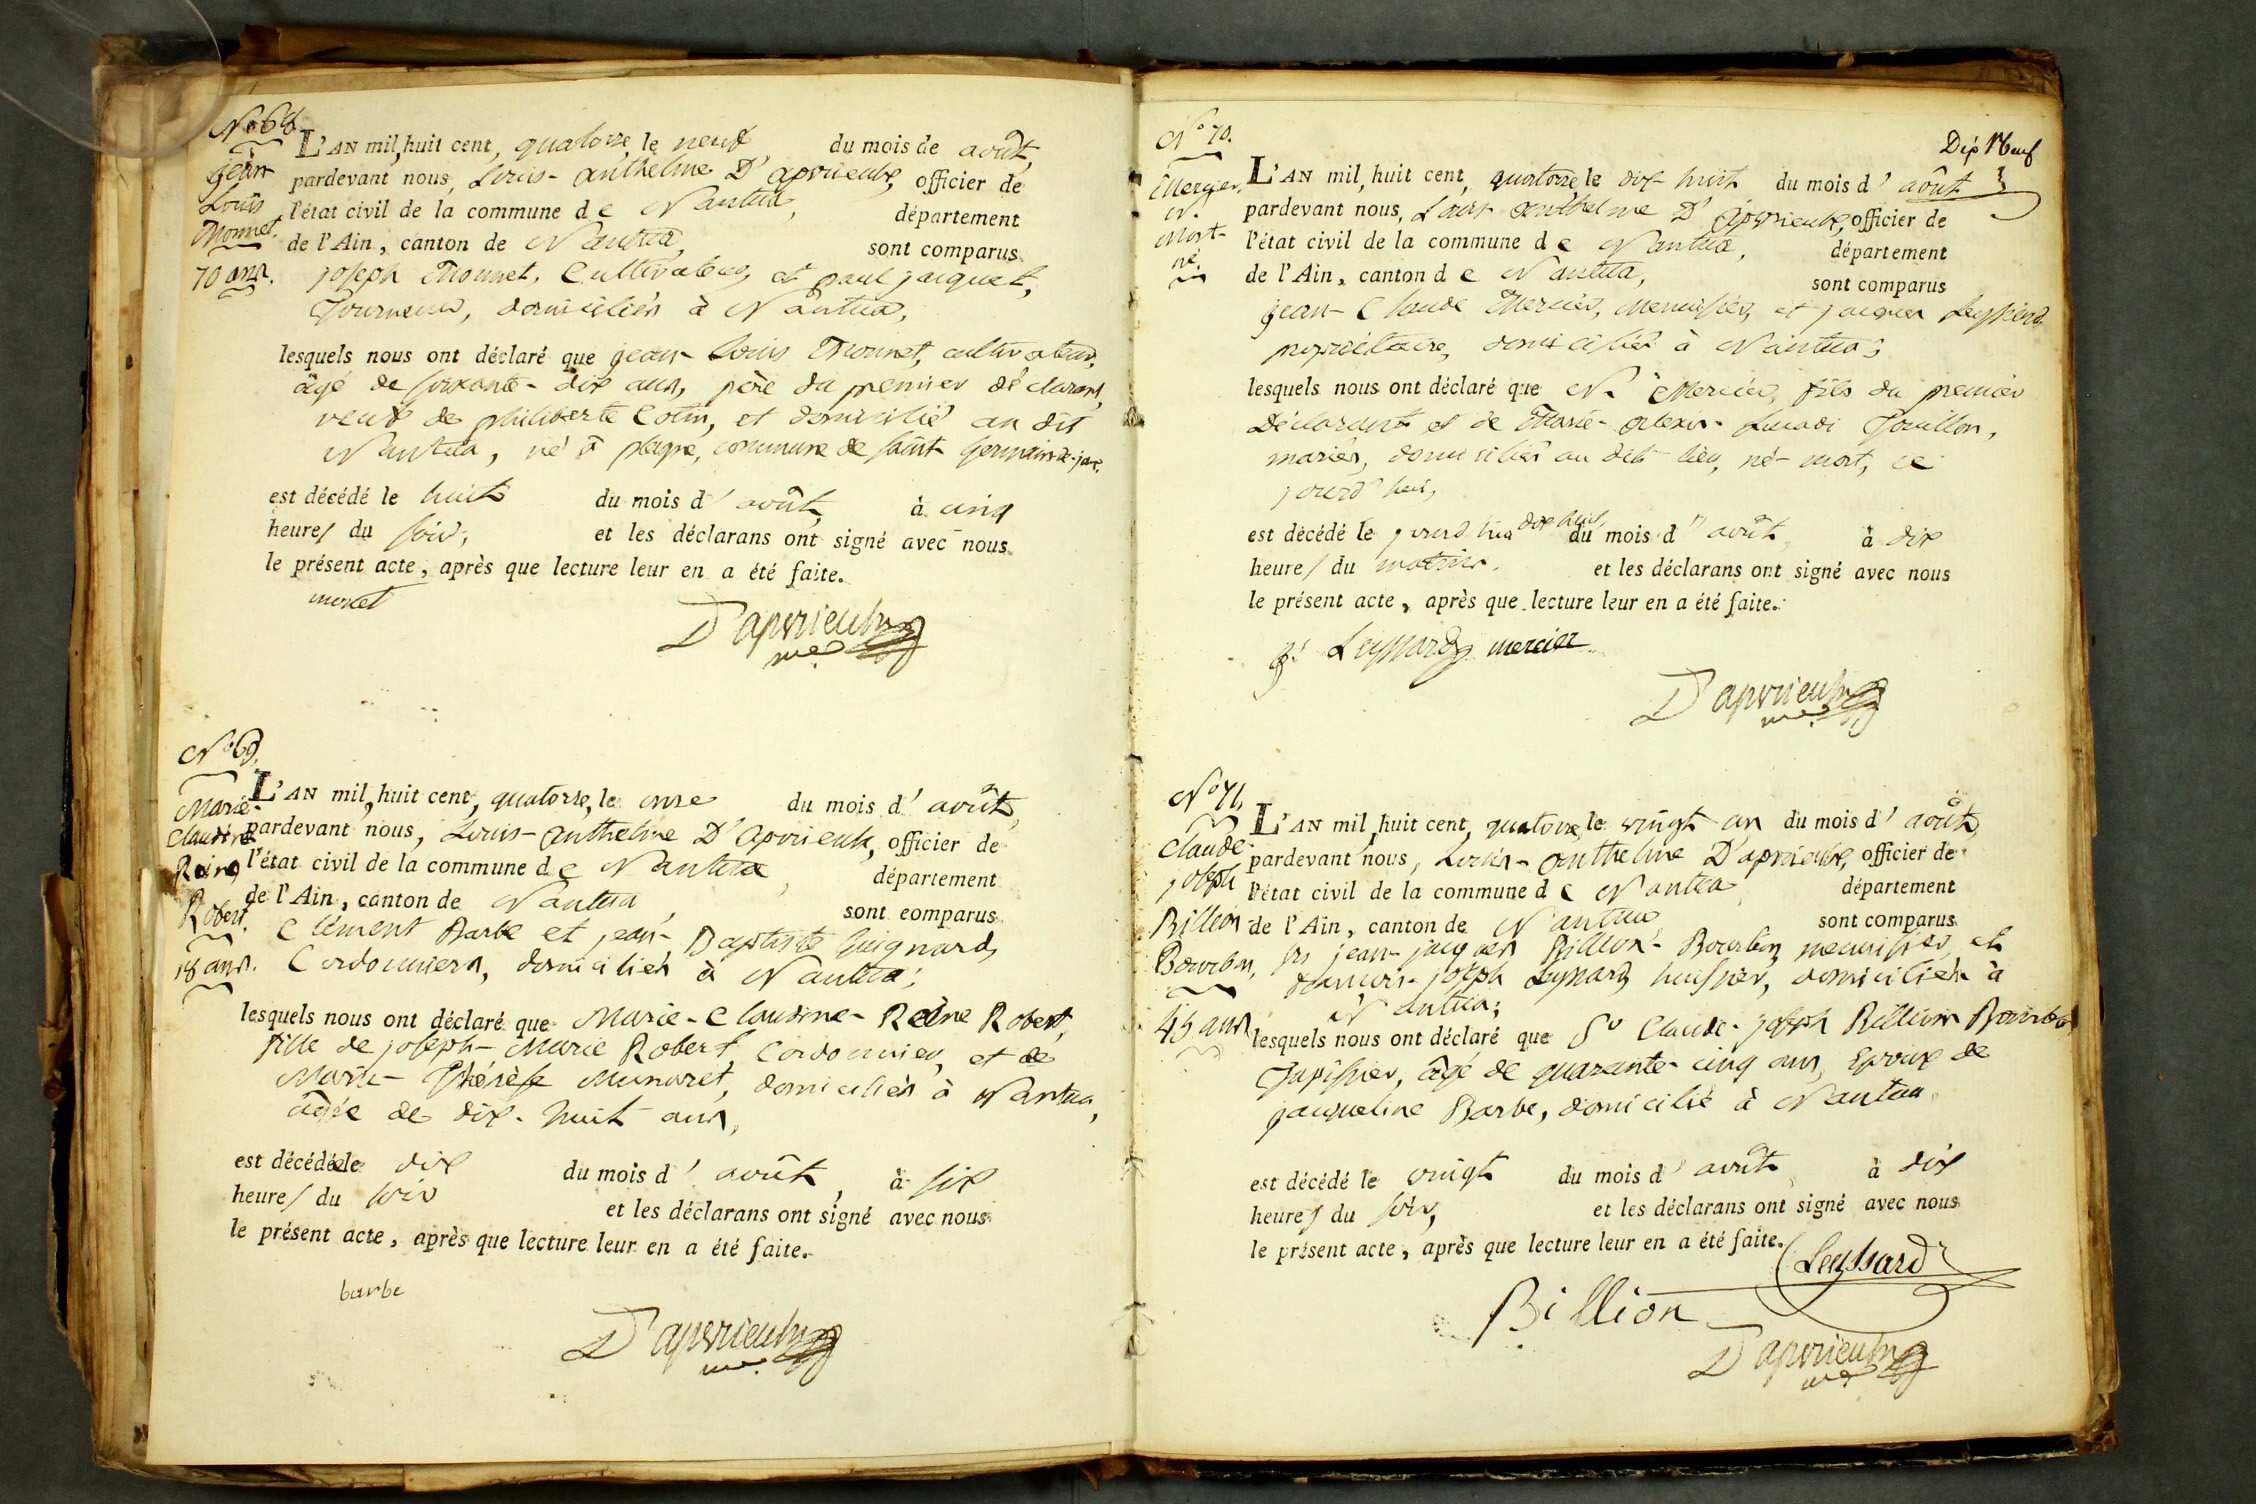 N.o 68.
Jean
Louis
Monnet.
70 ans.
L'AN mil, huit cent, quatorze, le neuf du mois de août,
pardevant nous, Louis-anthelme D'apvrieulx, officier de
l'état civil de la commune de Nantua, département
de l'Ain, canton de Nantua, sont comparus
joseph Monnet, Cultivateur, et paul jacquet,
Tourneur, domiciliés à Nantua,
lesquels nous ont déclaré que jean-Louis Monnet, cultivateur,
âgé de soixante-dix ans, père du premier déclarant,
veuf de philiberte Cotin, et domicilié au dit
Nantua, né à plagne, commune de saint-germain-de-joux,
est décédé le huit du mois d'août, à cinq
heures du soir, et les déclarans ont signé avec nous
le présent acte, après que lecture leur en a été faite.
monet
D'apvrieulx
me.
N.o 69.
Marie
Claudine
Reine
Robert.
18 ans.
L'AN mil, huit cent, quatorze, le onze du mois d'août,
pardevant nous, Louis-anthelme D'apvrieulx, officier de
l'état civil de la commune de Nantua, département
de l'Ain, canton de Nantua, sont comparus
Clément Barbe et jean-Baptiste Guignard,
Cordonniers, domiciliés à Nantua;
lesquels nous ont déclaré que Marie-Claudine-Reine Robert,
fille de joseph-Marie Robert, Cordonnier, et de
Marie-Thérèse Munaret, domiciliés à Nantua,
âgée de dix-huit ans,
est décédée le dix du mois d'août, à six
heures du soir et les déclarans ont signé avec nous
le présent acte, après que lecture leur en a été faite.
barbe
D'apvrieulx
me.
Dix Neuf
N.o 70.
Mercier,
N.
Mort-
né.
L'AN mil, huit cent, quatorze, le dix-huit du mois d'août
pardevant nous, Louis-anthelme D'apvrieulx, officier de
l'état civil de la commune de Nantua, département
de l'Ain, canton de Nantua, sont comparus
jean-Claude Mercier, Menuisier, et jacques Leyssard
propriétaire, domiciliés à Nantua;
lesquels nous ont déclaré que N. Mercier, fils du premier
Déclarant et de Marie-alexis- Jouillon,
mariés, domiciliés au dit lieu, né-mort, ce
jourd'hui,
est décédé le jourd'hui dix huit du mois d'août, à dix
heures du matin. et les déclarans ont signé avec nous
le présent acte, après que lecture leur en a été faite.
Leyssard mercier
D'apvrieulx
me.
N.o 71.
Claude
joseph
Billion
Bourbon,
45 ans
L'AN mil, huit cent, quatorze, le vingt un du mois d'août,
pardevant nous, Louis-anthelme D'apvrieulx, officier de
l'état civil de la commune de Nantua, département
de l'Ain, canton de Nantua sont comparus
srs jean-jacques Billion-Bourbon, menuisier, et
françois-joseph Leyssard, huissier, domiciliés à
Nantua;
lesquels nous ont déclaré que Sr Claude-joseph Billion Bourbon
Tapissier, âgé de quarante-cinq ans, Epoux de
jacqueline Barbe, domicilié à Nantua,
est décédé le vingt du mois d'août, à dix
heures du soir, et les déclarans ont signé avec nous
le présent acte, après que lecture leur en a été faite.
Leyssard
Billion
D'apvrieulx
me.